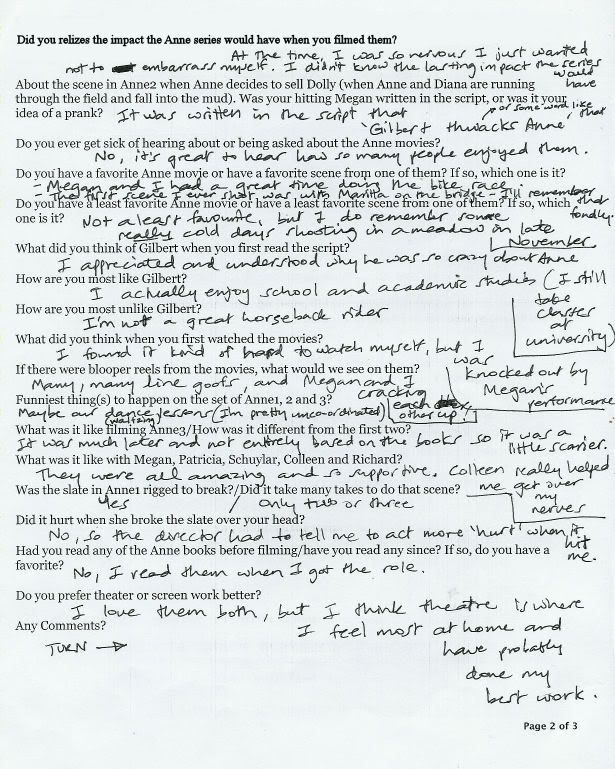 Did you relizes the impact the Anne series would have when you filmed them?
At the time, I was so nervous I just wanted
not to embarrass myself. I didn't know the lasting impact the series
would have
About the scene in Anne2 when Anne decides to sell Dolly (when Anne and Diana are running
through the field and fall into the mud). Was your hitting Megan written in the script, or was it your
idea of a prank? It was written in the script that
'Gilbert thwacks Anne'
or some word like that
Do you ever get sick of hearing about or being asked about the Anne movies?
No, it's great to hear how so many people enjoyed them.
Do you have a favorite Anne movie or have a favorite scene from one of them? If so, which one is it?
- Megan and I had a great time doing the bike race.
- The first scene I ever shot was with Marilla on the bridge - I'll remember
that fondly.
Do you have a least favorite Anne movie or have a least favorite scene from one of them? If so, which
one is it? Not a least favourite, but I do remember some
really cold days shooting in a meadow in late
November
What did you think of Gilbert when you first read the script?
I appreciated and understood why he was so crazy about Anne
How are you most like Gilbert?
I actually enjoy school and academic studies (I still
take
classes
at
university)
How are you most unlike Gilbert?
I'm not a great horseback rider
What did you think when you first watched the movies?
I found it kind of hard to watch myself, but I
was
knocked out by
Megan's
performance
If there were blooper reels from the movies, what would we see on them?
Many, many line goofs, and Megan and I
cracking
each other up!
Funniest thing(s) to happen on the set of Anne1, 2 and 3?
Maybe our dance lessons (I'm pretty unco-ordinated)
(waltzing)
What was it like filming Anne3/How was it different from the first two?
It was much later and not entirely based on the books so it was a
little scarier.
What was it like with Megan, Patricia, Schuylar, Colleen and Richard?
They were all amazing and so supportive. Colleen really helped
me get over
my
nerves
Was the slate in Anne1 rigged to break?/Did it take many takes to do that scene?
Yes / only two or three
Did it hurt when she broke the slate over your head?
No, so the director had to tell me to act more 'hurt' when it
hit
me.
Had you read any of the Anne books before filming/have you read any since? If so, do you have a
favorite? No, I read them when I got the role.
Do you prefer theater or screen work better?
I love them both, but I think theatre is where
I feel most at home and
have probably
done my
best work.
Any Comments?
TURN →
Page 2 of 3